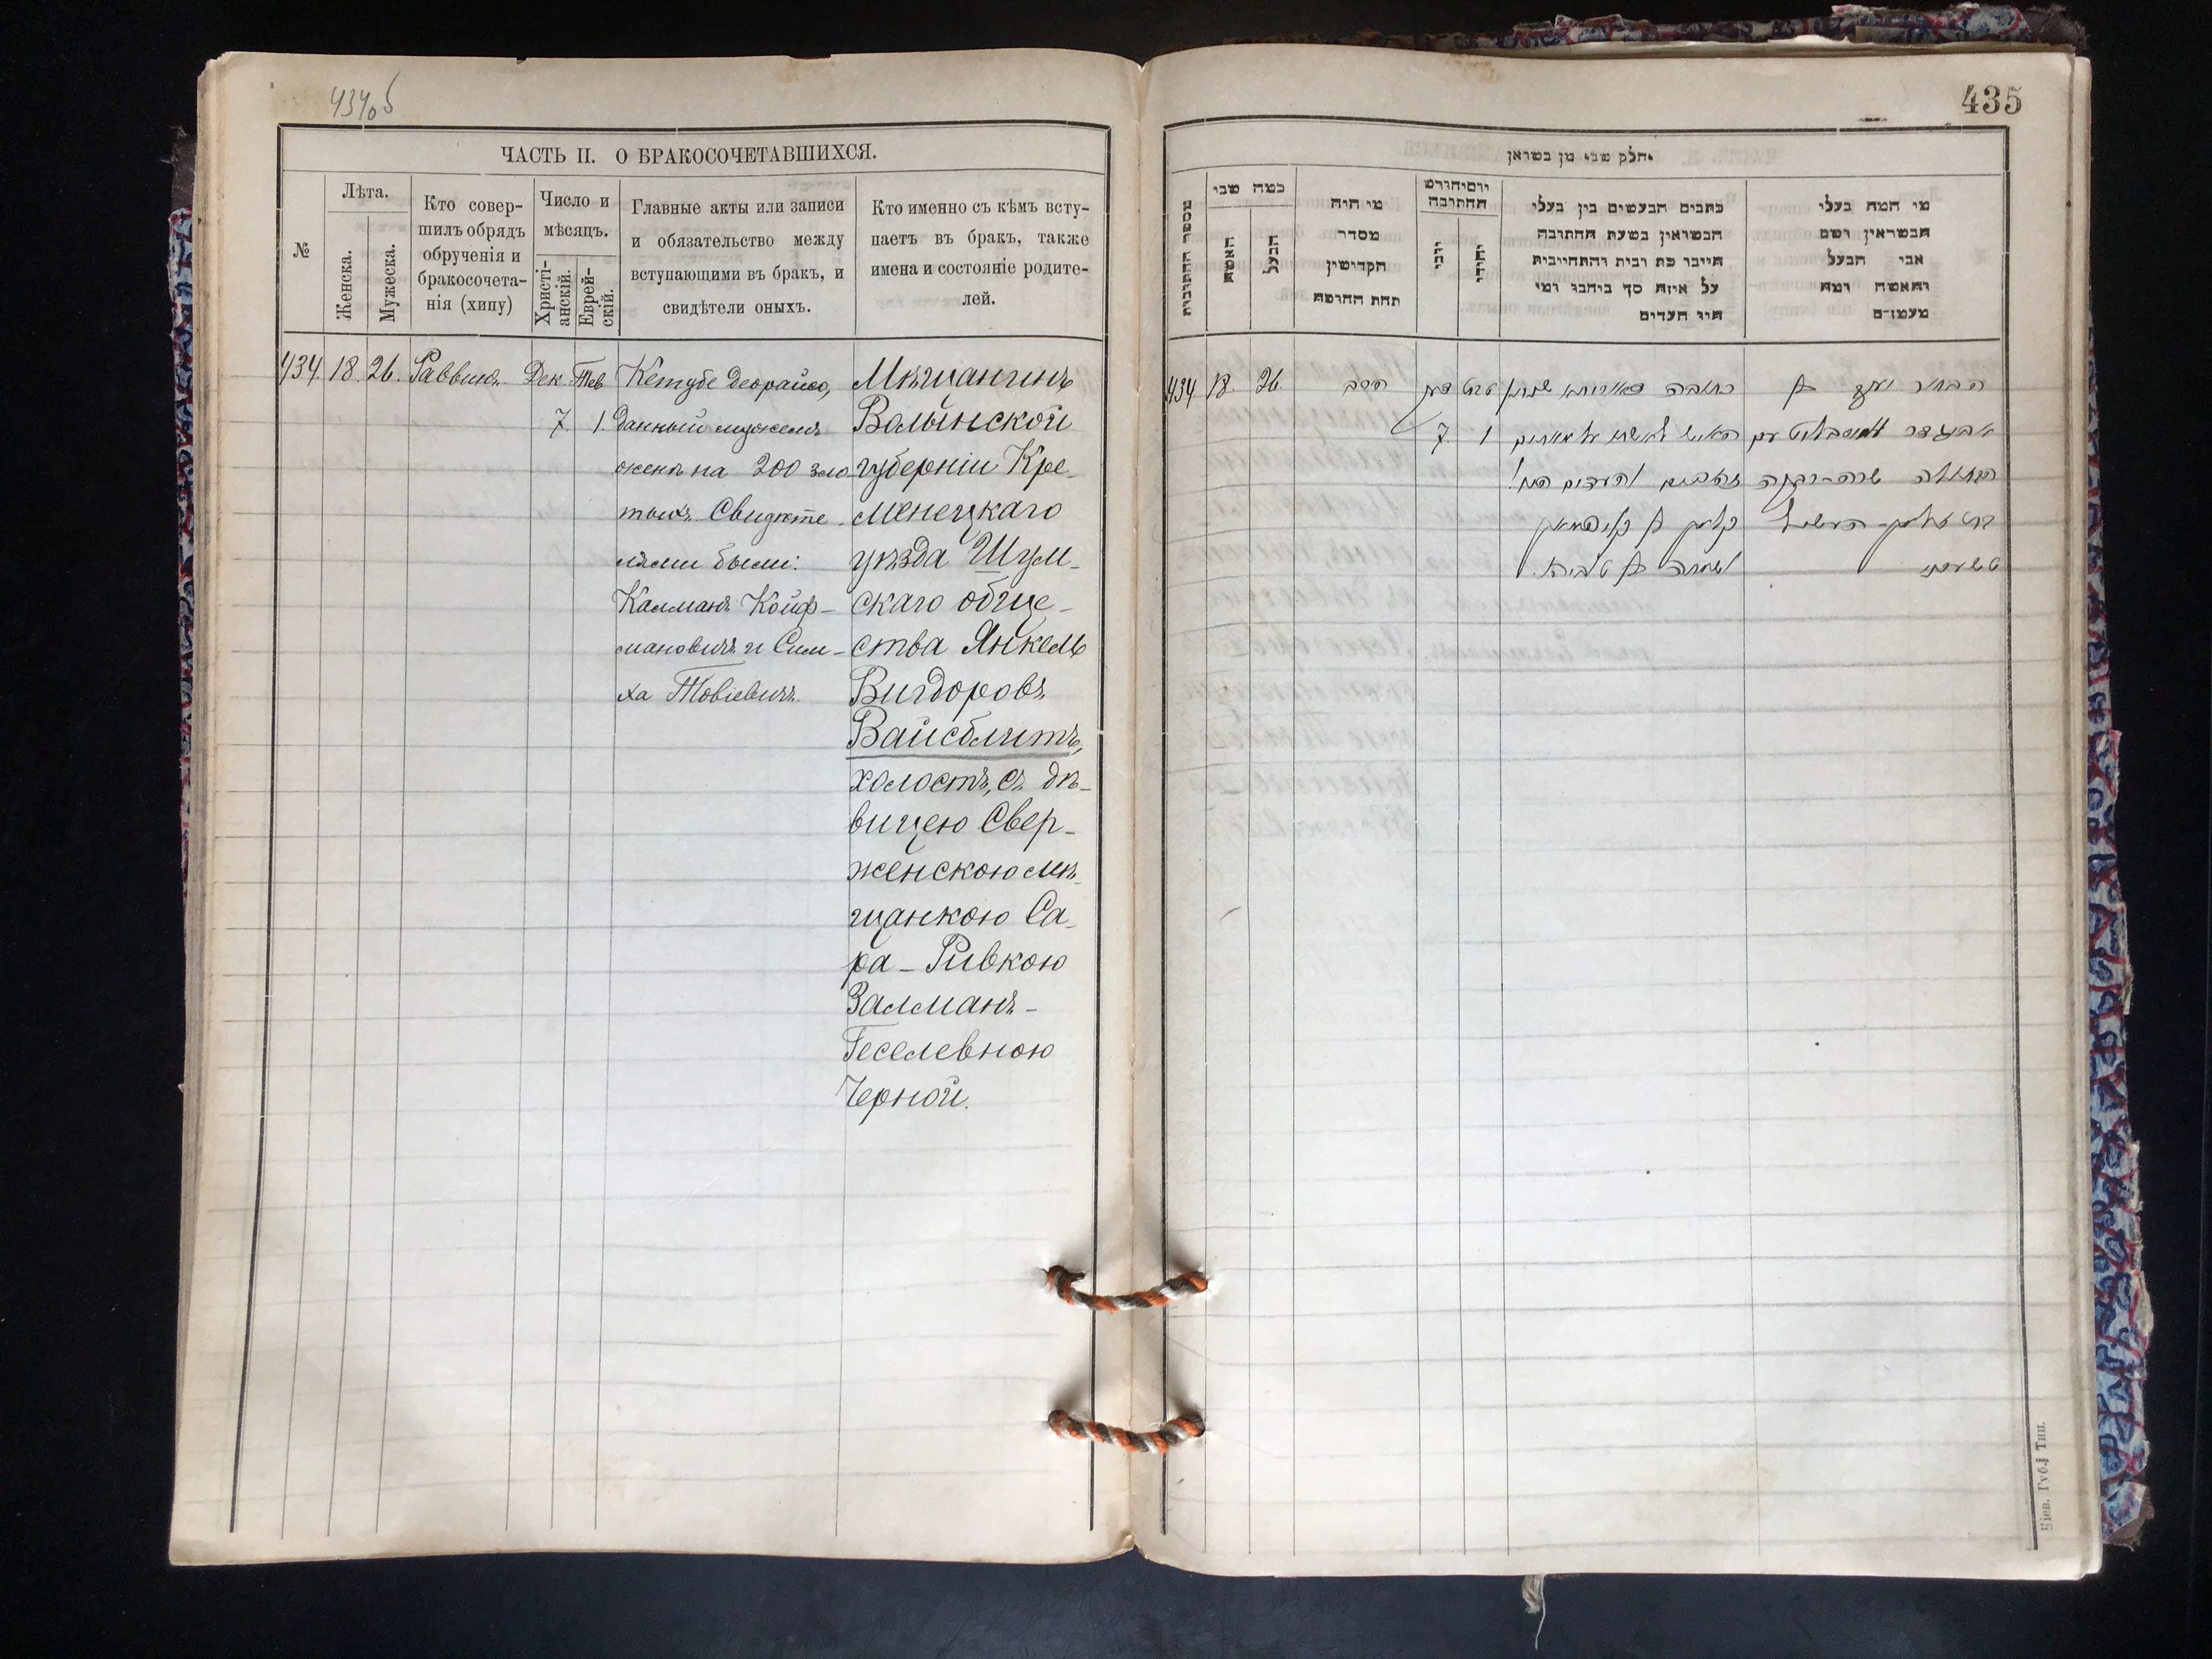 434об
ЧАСТЬ II. О БРАКОСОЧЕТАВШИХСЯ.
№
Лѣта.
Женска.
Мужеска.
Кто совер-
шилъ обрядъ
обрученія и
бракосочета-
нія (хипу)
Число и
мѣсяцъ.
Христі-
анскій.
Еврей-
скій.
Главные акты или записи
и обязательство между
вступающими въ бракъ, и
свидѣтели оныхъ.
Кто именно съ кѣмъ всту-
паетъ въ бракъ, также
имена и состояніе родите-
лей.
434. 18. 26. Раввинъ. Дек Тев
7. 1.
Кетубе Деорайсо,
данный мужемъ
женѣ на 200 зло
тыхъ. Свидѣте-
лями были:
Калманъ Койф-
мановичъ и Сим-
ха Товіевичъ.
Мѣщанинъ
Волынской
губерніи Кре-
менецкаго
уѣзда Шум-
скаго обще-
ства Янкель
Вигдоровъ
Вайсблитъ,
холостъ, съ дѣ-
вицею Свер-
женскою мѣ-
щанкою Са-
ра-Ривкою
Залманъ-
Геселевною
Черной.
435
חלק שני מן נשואין
מספר החתונות
כמה שני
האשה
הבעל
מי היה
מסדר
הקדישין
תחת החופה
יום וחודש
החתונה
כתבים הנעשים בין בעלי
הנשואין בשעת החתונה
על איזה סך ניתנו ומי
היו העדים
מי המה בעלי
הנשואין ושם
אבי הבעל
והאשה ומה
מעמדם
434 18. 26. הרב
7. 1
כתובה דאורייתא
קלמן בן קויפמאן
ושמחה בן טוביה.
הבחור יענקל בן
אביגדר ווייסבליט עם
הבתולה שרה-רבקה
Кіев. Губ. Тип.